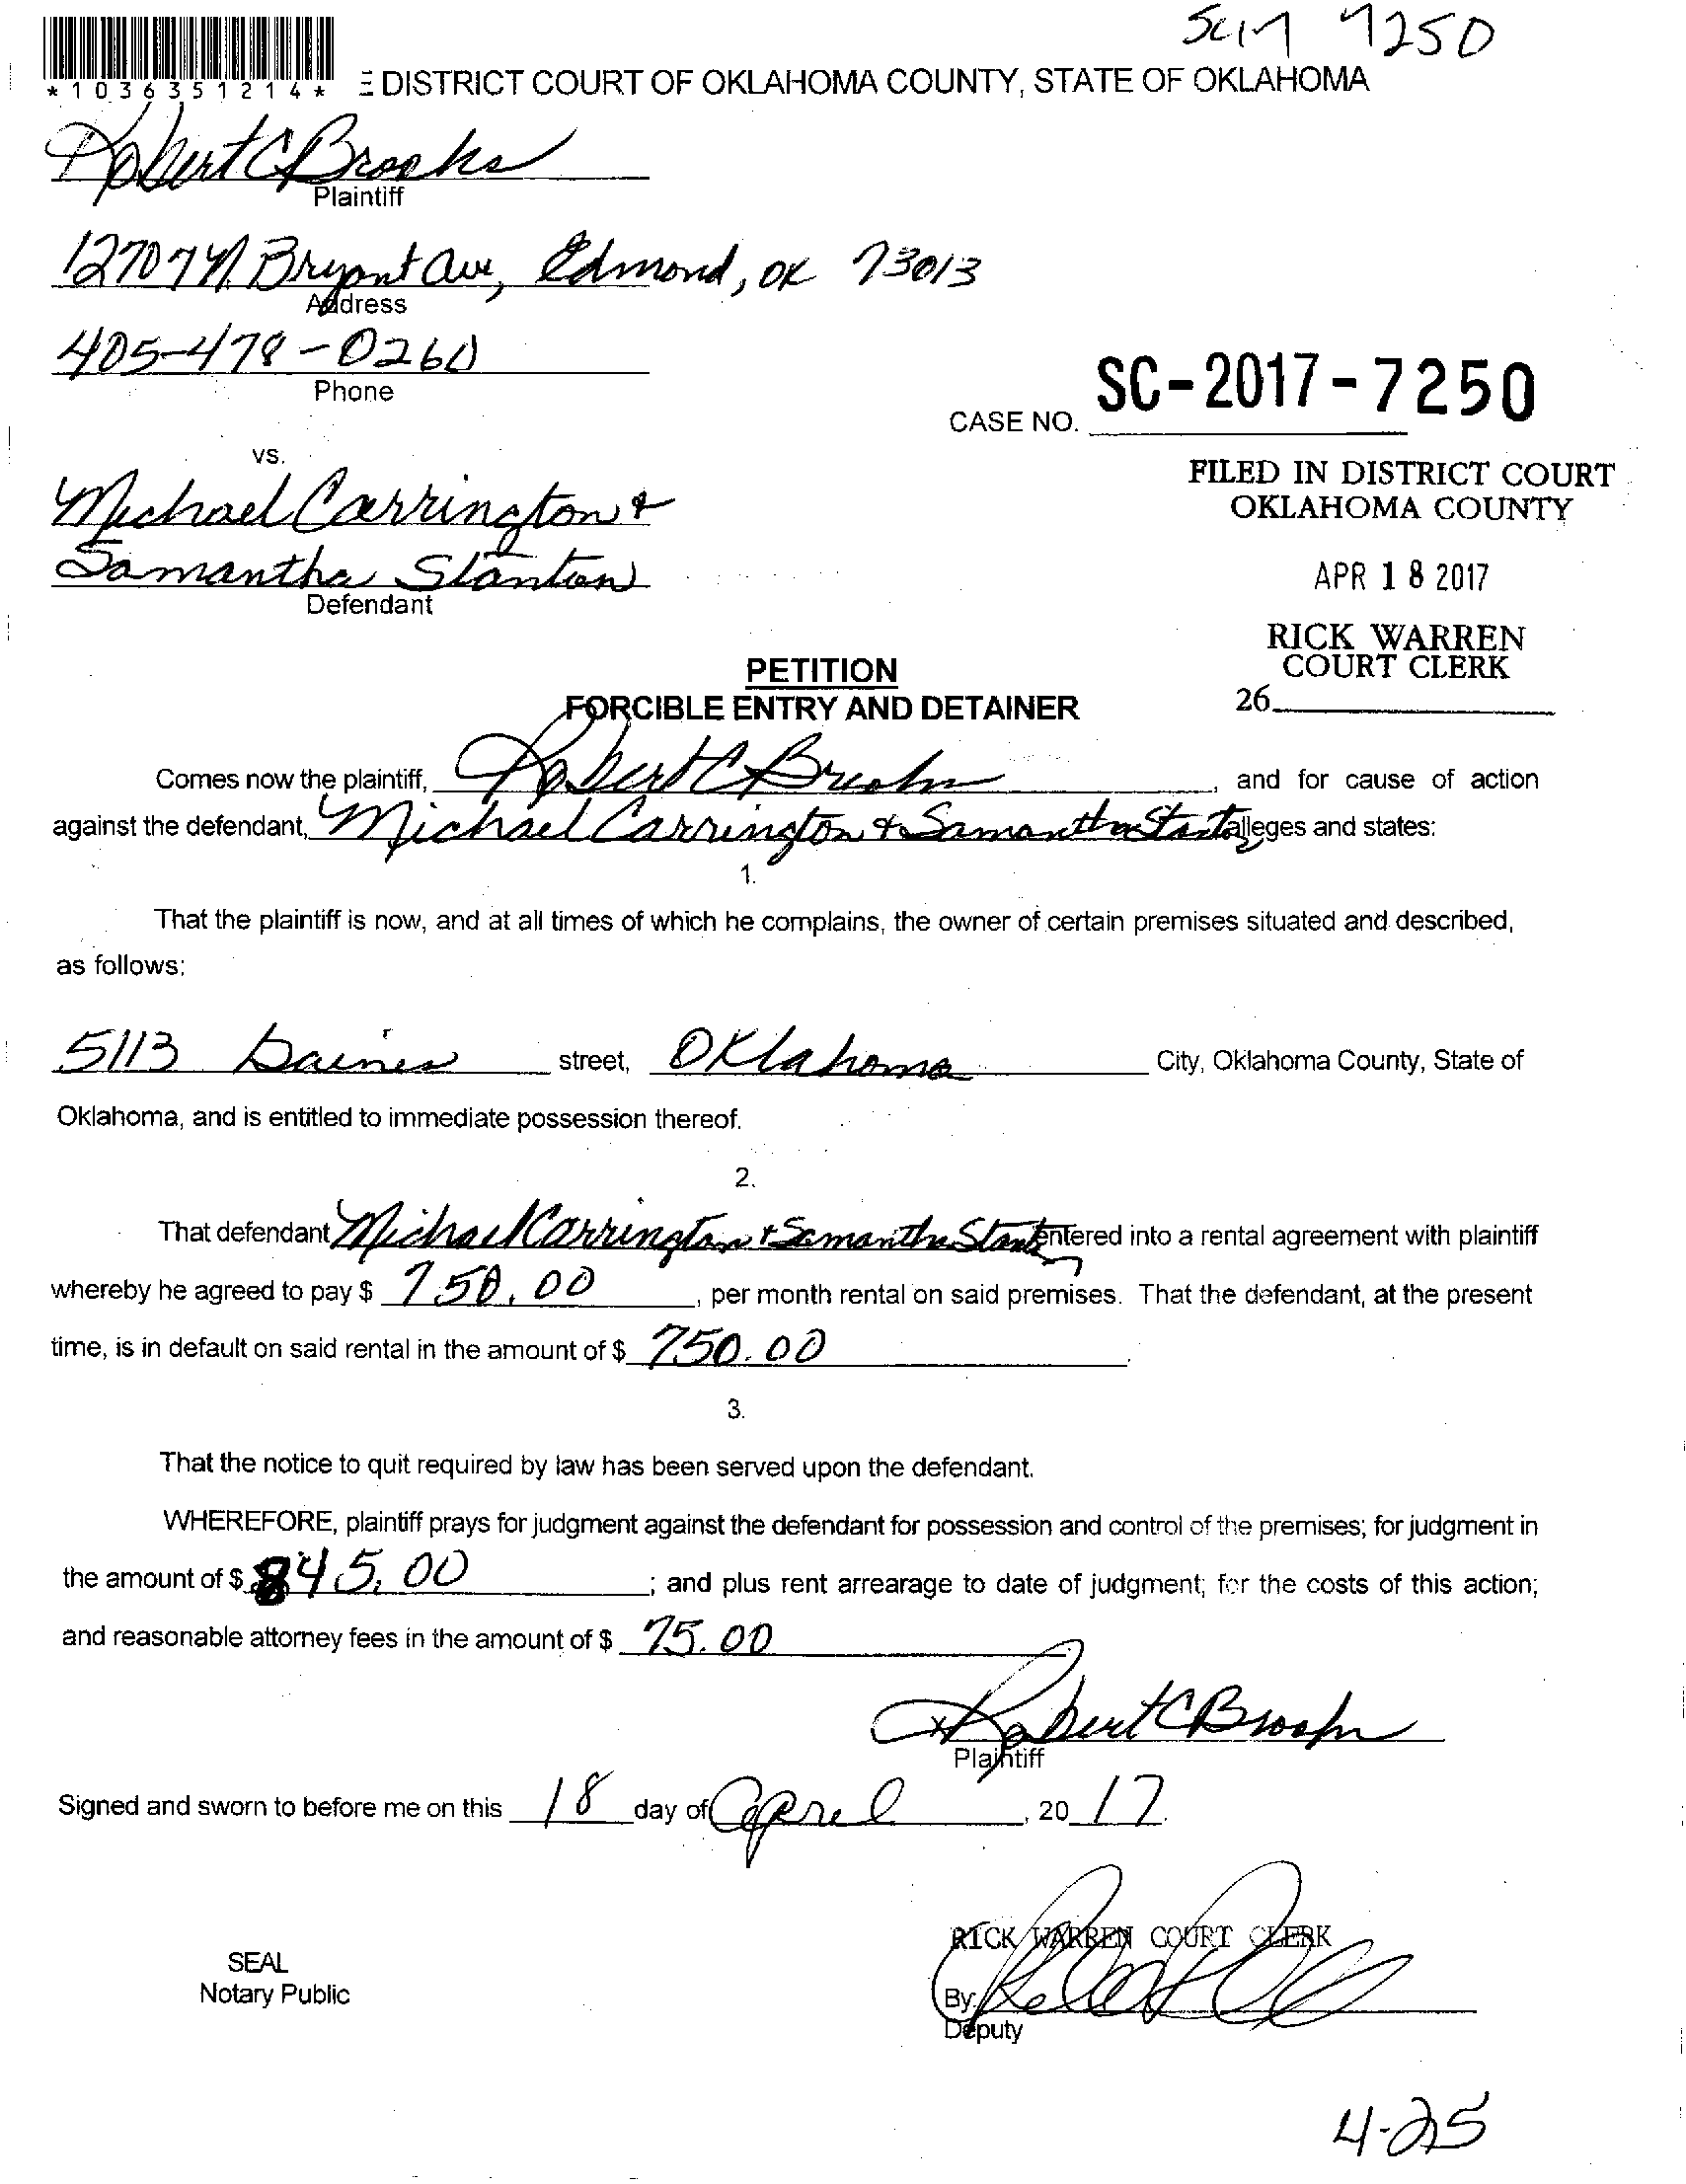 SC17 7250
*1036351214*
E DISTRICT COURT OF OKLAHOMA COUNTY, STATE OF OKLAHOMA
Robert C Brooks
Plaintiff
12707 N. Bryant Ave, Edmond, OK 73013
Address
405-478-0260
Phone
CASE NO. SC-2017-7250
vs.
FILED IN DISTRICT COURT
OKLAHOMA COUNTY
Michael Carrington &
Samantha Stanton
Defendant
APR 18 2017
RICK WARREN
COURT CLERK
26
PETITION
FORCIBLE ENTRY AND DETAINER
Comes now the plaintiff, Robert C Brooks, and for cause of action
against the defendant, Michael Carrington & Samantha Stanton alleges and states:
1.
That the plaintiff is now, and at all times of which he complains, the owner of certain premises situated and described,
as follows:
5113 Gaines street, Oklahoma City, Oklahoma County, State of
Oklahoma, and is entitled to immediate possession thereof.
2.
That defendant Michael Carrington & Samantha Stanton entered into a rental agreement with plaintiff
whereby he agreed to pay $ 750.00, per month rental on said premises. That the defendant, at the present
time, is in default on said rental in the amount of $ 750.00.
3.
That the notice to quit required by law has been served upon the defendant.
WHEREFORE, plaintiff prays for judgment against the defendant for possession and control of the premises; for judgment in
the amount of $ 845.00; and plus rent arrearage to date of judgment; for the costs of this action;
and reasonable attorney fees in the amount of $ 75.00
x Robert C Brooks
Plaintiff
Signed and sworn to before me on this 18 day of April, 20 17.
RICK WARREN COURT CLERK
SEAL
Notary Public
By:
Deputy
4-25